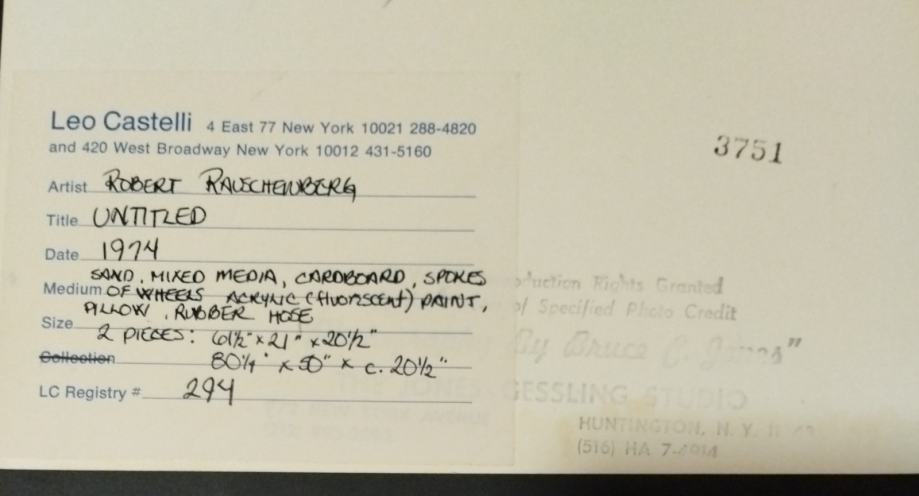 Leo Castelli 4 East 77 New York 10021 288-4820
and 420 West Broadway New York 10012 431-5160
3751
Artist ROBERT RAUSCHENBERG
Title UNTITLED
Date 1974
SAND, MIXED MEDIA, CARDBOARD, SPOKES
Medium OF WHEELS ACRYLIC (fluorscent) PAINT,
PILLOW, RUBBER HOSE
Size 2 PIECES: 61½" x 21" x 20½"
Collection 80¼" x 50" x c. 20½"
LC Registry # 294
duction Rights Granted
of Specified Photo Credit
By Bruce C. Jones"
THE JONES GESSLING STUDIO
HUNTINGTON, N. Y.
(516) HA 7-